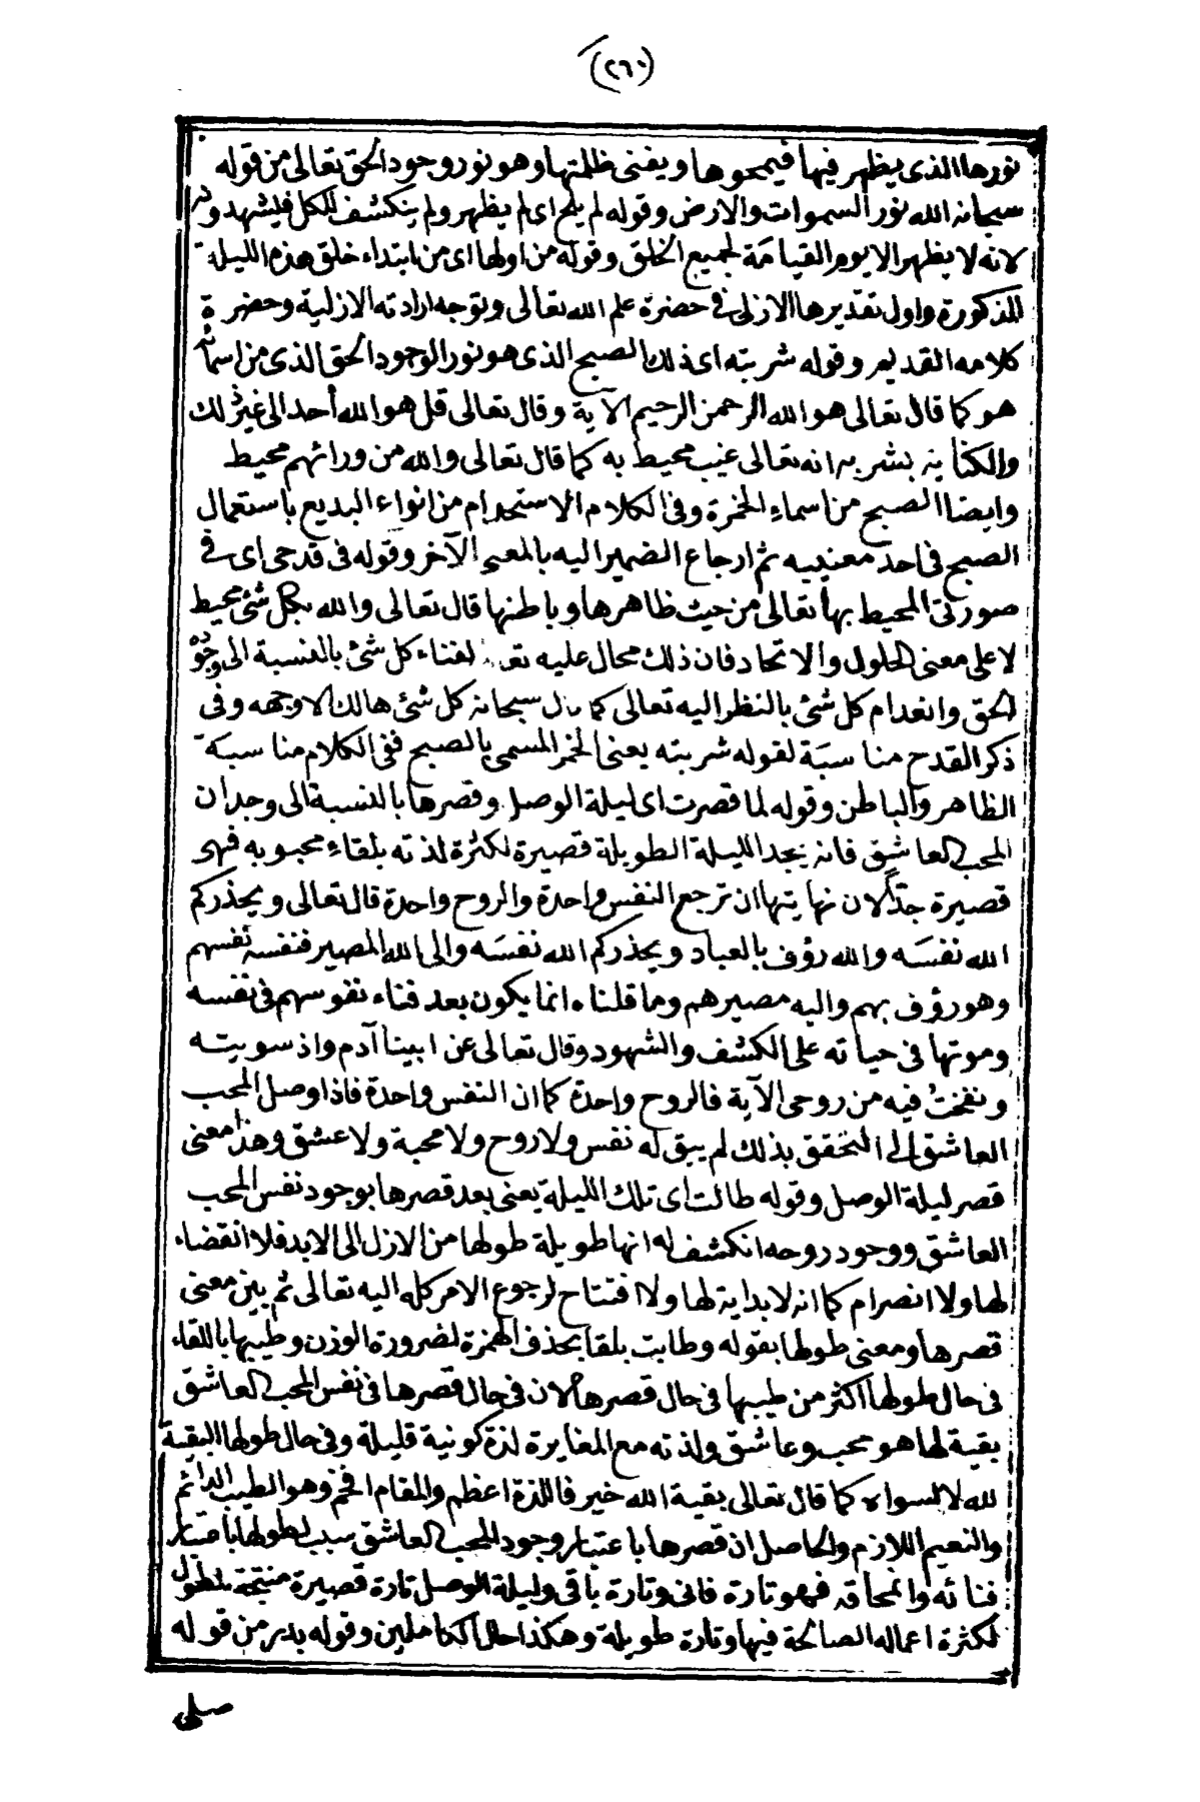 (٢٦٠)
نورها الذى يظهر فيها فيمحوها ويفنى ظلمتها وهو نور وجود الحق تعالى من قوله
سبحانه الله نور السموات والارض وقوله لم يلح اى لم يظهر ولم ينكشف للكل فيشهدونه
لانه لا يظهر الا يوم القيامة لجميع الخلق وقوله من اولها اى من ابتداء خلق هذه الليلة
المذكورة واول تقديرها الازلى فى حضرة علم الله تعالى وتوجه ارادته الازلية وحضرة
كلامه القديم وقوله شربته اى ذلك الصبح الذى هو نور الوجود الحق الذى من اسمائه
هو كما قال تعالى هو الله الرحمن الرحيم الآية وقال تعالى قل هو الله أحد الى غير ذلك
والكناية بشربه انه تعالى غيب محيط به كما قال تعالى والله من ورائهم محيط
وايضا الصبح من اسماء الخمرة وفى الكلام الاستخدام من انواع البديع باستعمال
الصبح فى احد معنييه ثم ارجاع الضمير اليه بالمعنى الآخر وقوله فى قدحى اى فى
صورتى المحيط بها تعالى من حيث ظاهرها وباطنها قال تعالى والله بكل شئ محيط
لا على معنى الحلول والاتحاد فان ذلك محال عليه لفناء كل شئ بالنسبة الى وجود
الحق وانعدام كل شئ بالنظر اليه تعالى كما قال سبحانه كل شئ هالك الا وجهه وفى
ذكر القدح مناسبة لقوله شربته يعنى الخمر المسمى بالصبح ففى الكلام مناسبة
الظاهر والباطن وقوله لما قصرت اى ليلة الوصل وقصرها بالنسبة الى وجدان
المحب العاشق فانه يجد الليلة الطويلة قصيرة لكثرة لذته بلقاء محبوبه فهى
قصيرة جدا لان نهايتها ان ترجع النفس واحدة والروح واحدة قال تعالى ويحذركم
الله نفسه والله رؤف بالعباد ويحذركم الله نفسه والى الله المصير فنفسه نفسهم
وهو رؤف بهم واليه مصيرهم وما قلناه انما يكون بعد فناء نفوسهم فى نفسه
وموتها فى حياته على الكشف والشهود وقال تعالى عن ابينا آدم واذ سويته
ونفختُ فيه من روحى الآية فالروح واحدة كما ان النفس واحدة فاذا وصل المحب
العاشق الى التحقق بذلك لم يبق له نفس ولا روح ولا محبة ولا عشق وهذا معنى
قصر ليلة الوصل وقوله طالت اى تلك الليلة يعنى بعد قصرها بوجود نفس المحب
العاشق ووجود روحه انكشف له انها طويلة طولها من الازل الى الابد فلا انقضاء
لها ولا انصرام كما انه لا بداية لها ولا افتتاح لرجوع الامر كله اليه تعالى ثم بين معنى
قصرها ومعنى طولها بقوله وطابت بلقا بحذف الهمزة لضرورة الوزن وطيبها باللقاء
فى حال طولها اكثر من طيبها فى حال قصرها لان فى حال قصرها فى نفس المحب العاشق
بقية لها هو محب وعاشق ولذته مع المغايرة لذة كونية قليلة وفى حال طولها البقية
لله لا لسواه كما قال تعالى بقية الله خير فاللذة اعظم والمقام افخم وهو الطيب الدائم
والنعيم اللازم والحاصل ان قصرها باعتبار وجود المحب العاشق سبب لطولها باعتبار
فنائه وانمحاقه فهو تارة فانى وتارة باقى وليلة الوصل تارة قصيرة منتجة للطول
لكثرة اعماله الصالحة فيها وتارة طويلة وهكذا حال الكاملين وقوله بدر من قوله
صلى